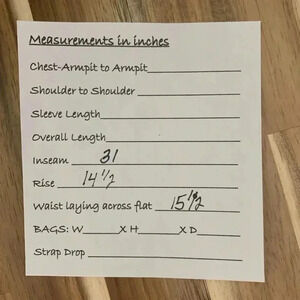 Measurements in inches
Chest-Armpit to Armpit
Shoulder to Shoulder
Sleeve Length
Overall Length
Inseam 31
Rise 14 1/2
Waist laying across flat 15 1/2
BAGS: W______X H______X D______
Strap Drop